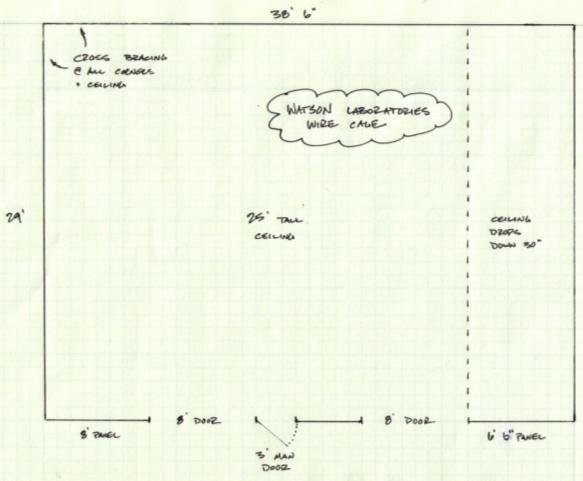 38' 6"
CROSS BRACING
@ ALL CORNERS
+ CEILING
WATSON LABORATORIES
WIRE CAGE
29'
25' TALL
CEILING
CEILING
DROPS
DOWN 30"
8' PANEL
8' DOOR
3' MAN
DOOR
8' DOOR
6' 6" PANEL